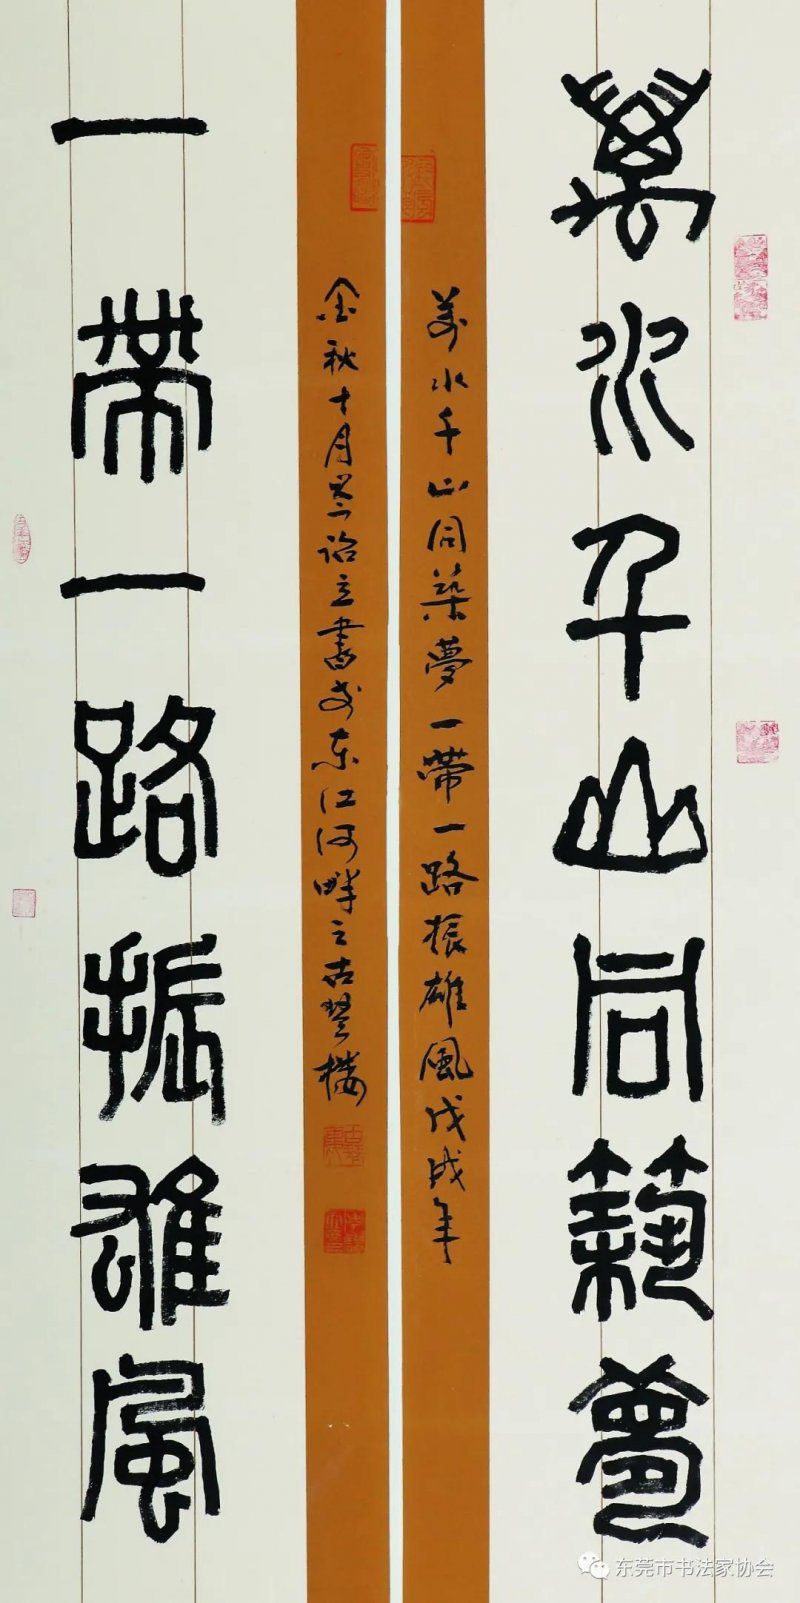 萬水千山同築夢
萬水千山同築夢一帶一路振雄風戊戌年
金秋十月李詒立書於東江河畔之古琴樓
一帶一路振雄風
东莞市书法家协会